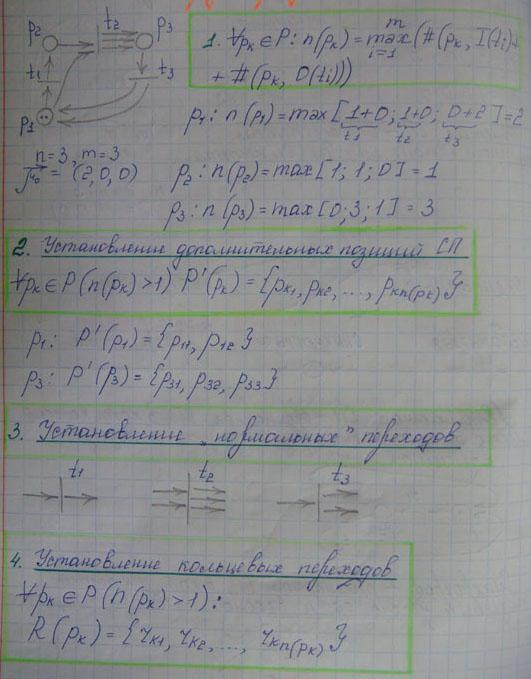 p₂ t₂ p₃
t₁ t₃
p₁
n=3, m=3
μ₀ = (2,0,0)
1. ∀pₖ∈P: n(pₖ)=max(#(pₖ, I(tᵢ)+
m
i=1
+ #(pₖ, O(tᵢ)))
p₁: n(p₁)=max[1+0; 1+0; 0+2]=2
t₁ t₂ t₃
p₂: n(p₂)=max[1; 1; 0]=1
p₃: n(p₃)=max[0; 3; 1]=3
2. Установление дополнительных позиций СП
∀pₖ∈P(n(pₖ)>1) P'(pₖ)={pₖ₁, pₖ₂, ..., pₖn(pₖ)}
p₁: P'(p₁)={p₁₁, p₁₂}
p₃: P'(p₃)={p₃₁, p₃₂, p₃₃}
3. Установление „нормальных" переходов
t₁ t₂ t₃
4. Установление кольцевых переходов
∀pₖ∈P(n(pₖ)>1):
R(pₖ)={rₖ₁, rₖ₂, ..., rₖn(pₖ)}